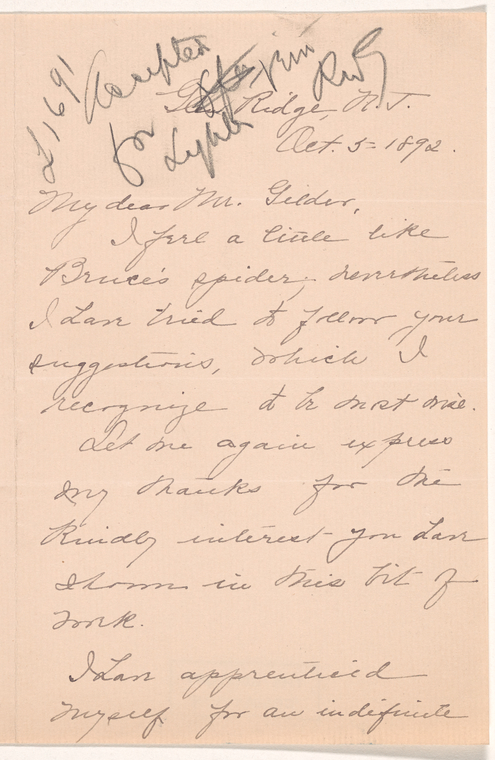 L 1691
Accepted
for
Lighter
Glen Ridge, N.J.
Oct. 5 = 1892.
My dear Mr. Gilder,
I feel a little like
Bruce's spider; nevertheless
I have tried to follow your
suggestions, which I
recognize to be most wise.
Let me again express
my thanks for the
kindly interest you have
shown in this bit of
work.
I have apprenticed
myself for an indefinite